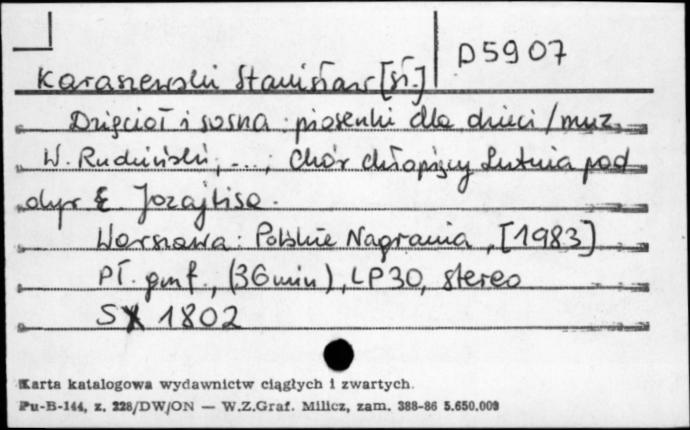 D5907
Karaszewski Stanisław [sł.]
Dzięcioł i sosna : piosenki dla dzieci / muz.
W. Rudziński, ... ; Chór chłopięcy Lutnia pod
dyr. E. Jozajtisa.
Warszawa : Polskie Nagrania, [1983]
Pł. gmf., (36 min), LP30, stereo
SX 1802
Karta katalogowa wydawnictw ciągłych i zwartych.
Pu-B-144, z. 228/DW/ON — W.Z.Graf. Milicz, zam. 388-86 5.650,000